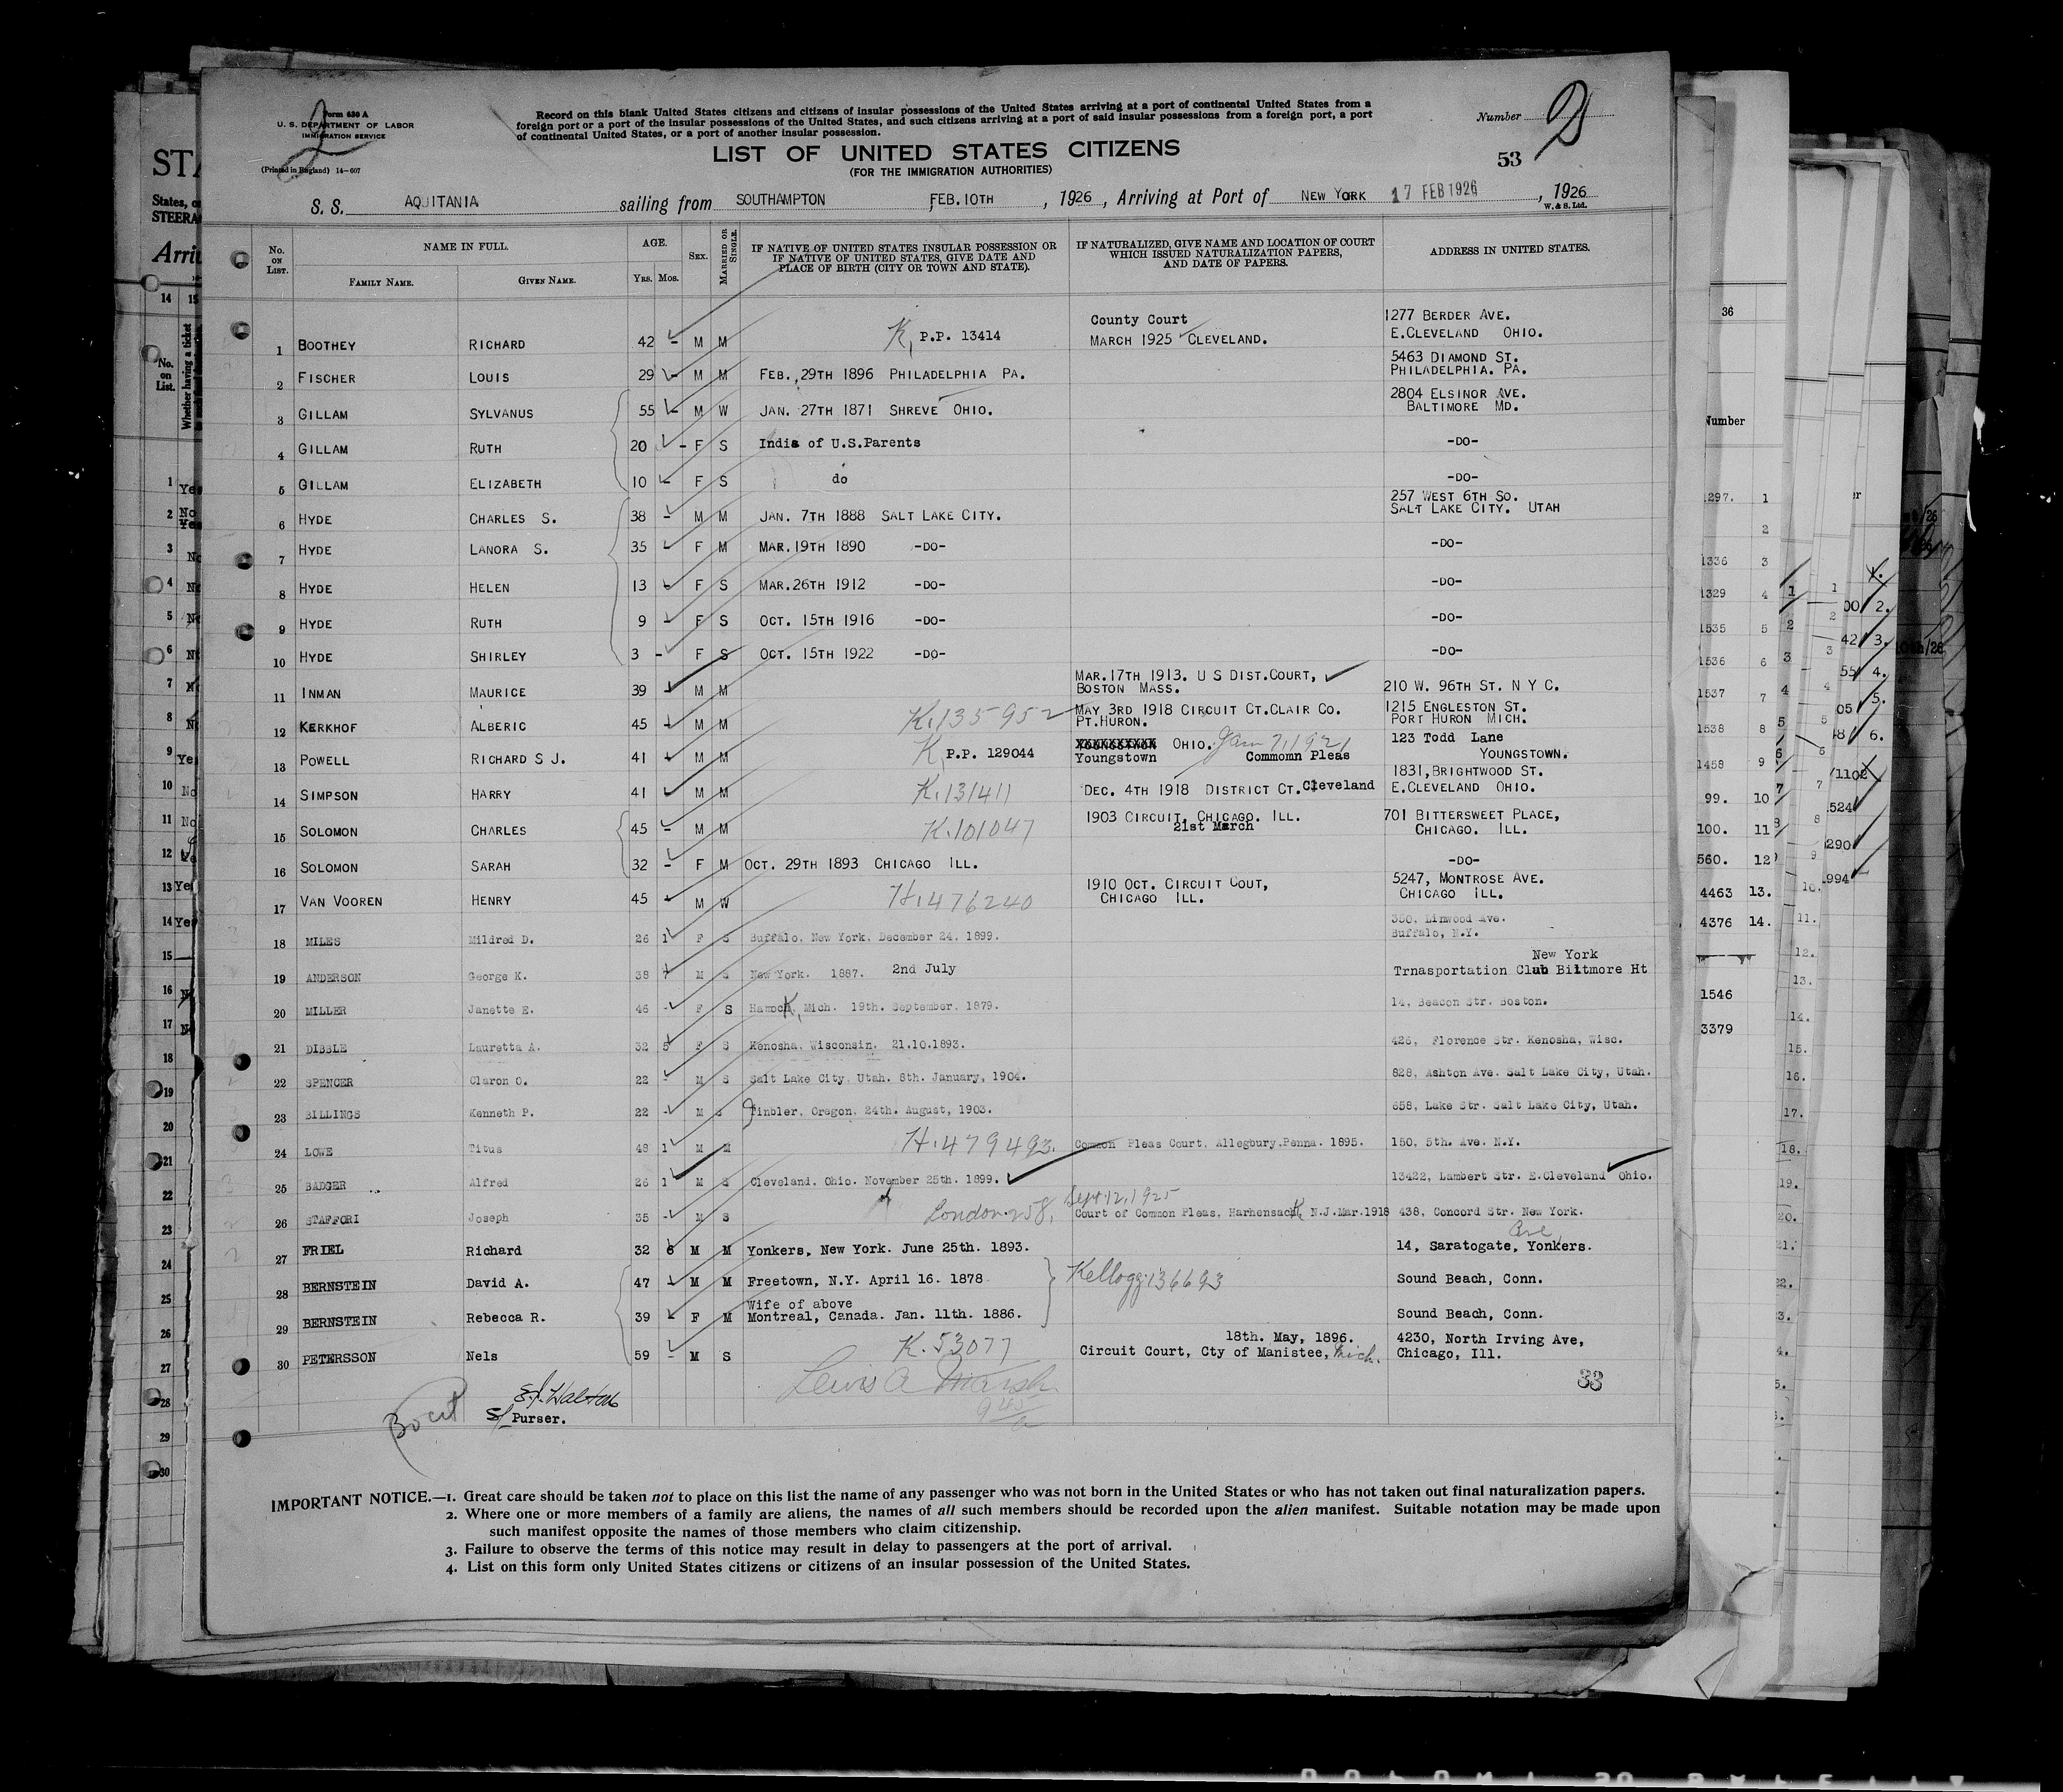 Form 630 A
U. S. DEPARTMENT OF LABOR
IMMIGRATION SERVICE
(Printed in England) 14-607
2
Record on this blank United States citizens and citizens of insular possessions of the United States arriving at a port of continental United States from a
foreign port or a port of the insular possessions of the United States, and such citizens arriving at a port of said insular possessions from a foreign port, a port
of continental United States, or a port of another insular possession.
Number
LIST OF UNITED STATES CITIZENS
(FOR THE IMMIGRATION AUTHORITIES)
53
S. S. AQUITANIA sailing from SOUTHAMPTON FEB. 10TH, 1926, Arriving at Port of NEW YORK 17 FEB 1926, 1926
W. & S. Ltd.
No. on List. NAME IN FULL. AGE. SEX. MARRIED OR SINGLE. IF NATIVE OF UNITED STATES INSULAR POSSESSION OR IF NATIVE OF UNITED STATES, GIVE DATE AND PLACE OF BIRTH (CITY OR TOWN AND STATE). IF NATURALIZED, GIVE NAME AND LOCATION OF COURT WHICH ISSUED NATURALIZATION PAPERS, AND DATE OF PAPERS. ADDRESS IN UNITED STATES.
FAMILY NAME. GIVEN NAME. YRS. MOS.
1 BOOTHEY RICHARD 42 - M M K, P.P. 13414 County Court MARCH 1925 CLEVELAND. 1277 BERDER AVE. E.CLEVELAND OHIO.
2 FISCHER LOUIS 29 - M M FEB., 29TH 1896 PHILADELPHIA PA. 5463 DIAMOND ST. PHILADELPHIA. PA.
3 GILLAM SYLVANUS 55 - M W JAN. 27TH 1871 SHREVE OHIO. 2804 ELSINOR AVE. BALTIMORE MD.
4 GILLAM RUTH 20 - F S India of U.S.Parents -DO-
5 GILLAM ELIZABETH 10 - F S do -DO-
6 HYDE CHARLES S. 38 - M M JAN. 7TH 1888 SALT LAKE CITY. 257 WEST 6TH SO. SALT LAKE CITY. UTAH
7 HYDE LANORA S. 35 - F M MAR. 19TH 1890 -DO- -DO-
8 HYDE HELEN 13 - F S MAR. 26TH 1912 -DO- -DO-
9 HYDE RUTH 9 - F S OCT. 15TH 1916 -DO- -DO-
10 HYDE SHIRLEY 3 - F S OCT. 15TH 1922 -DO- -DO-
11 INMAN MAURICE 39 - M M MAR. 17TH 1913. U S DIST.COURT, BOSTON MASS. 210 W. 96TH ST. N Y C.
12 KERKHOF ALBERIC 45 - M M K.135952 MAY 3RD 1918 CIRCUIT CT.CLAIR CO. PT.HURON. 1215 ENGLESTON ST. PORT HURON MICH.
13 POWELL RICHARD S J. 41 - M M K P.P. 129044 OHIO. Jan 7, 1921 Youngstown Commomn Pleas 123 Todd Lane YOUNGSTOWN.
14 SIMPSON HARRY 41 - M M K.131411 DEC. 4TH 1918 DISTRICT CT. Cleveland 1831, BRIGHTWOOD ST. E.CLEVELAND OHIO.
15 SOLOMON CHARLES 45 - M M K.101047 1903 CIRCUIT, CHICAGO. ILL. 21st March 701 BITTERSWEET PLACE, CHICAGO. ILL.
16 SOLOMON SARAH 32 - F M OCT. 29TH 1893 CHICAGO ILL. -DO-
17 VAN VOOREN HENRY 45 - M W H.476240 1910 OCT. CIRCUIT COUT, CHICAGO ILL. 5247, MONTROSE AVE. CHICAGO ILL.
18 MILES Mildred D. 26 1 F S Buffalo, New York. December 24. 1899. 350, Linwood Ave. Buffalo, N.Y.
19 ANDERSON George K. 38 7 M S New York. 1887. 2nd July New York Trnasportation Club Biltmore Ht
20 MILLER Janette E. 46 - F S Hancock, Mich. 19th. September, 1879. 14, Beacon Str. Boston.
21 DIBBLE Lauretta A. 32 5 F S Kenosha, Wisconsin. 21.10.1893. 426, Florence Str. Kenosha, Wisc.
22 SPENCER Claron O. 22 - M S Salt Lake City, Utah. 8th. January, 1904. 828, Ashton Ave. Salt Lake City, Utah.
23 BILLINGS Kenneth P. 22 - M S Finbler, Oregon, 24th. August, 1903. 658, Lake Str. Salt Lake City, Utah.
24 LOWE Titus 48 1 M M H.479493. Common Pleas Court, Allegbury.Penna. 1895. 150, 5th. Ave. N.Y.
25 BADGER Alfred 26 1 M S Cleveland, Ohio. November 25th. 1899. 13422, Lambert Str. E.Cleveland Ohio.
26 STAFFORI Joseph 35 - M S London 258, Sept. 12, 1925 Court of Common Pleas, Harhensack, N.J.Mar.1918 438, Concord Str. New York.
27 FRIEL Richard 32 6 M M Yonkers, New York. June 25th. 1893. 14, Saratogate, Ave, Yonkers.
28 BERNSTEIN David A. 47 - M M Freetown, N.Y. April 16. 1878 Kellogg 136693 Sound Beach, Conn.
29 BERNSTEIN Rebecca R. 39 - F M Wife of above Montreal, Canada. Jan. 11th. 1886. Sound Beach, Conn.
30 PETERSSON Nels 59 - M S K.53077 18th. May, 1896. Circuit Court, Cty of Manistee, Mich. 4230, North Irving Ave, Chicago, Ill.
Lewis A Marsh
33
S.J. Walton
S/ Purser.
IMPORTANT NOTICE.—1. Great care should be taken not to place on this list the name of any passenger who was not born in the United States or who has not taken out final naturalization papers.
2. Where one or more members of a family are aliens, the names of all such members should be recorded upon the alien manifest. Suitable notation may be made upon
such manifest opposite the names of those members who claim citizenship.
3. Failure to observe the terms of this notice may result in delay to passengers at the port of arrival.
4. List on this form only United States citizens or citizens of an insular possession of the United States.